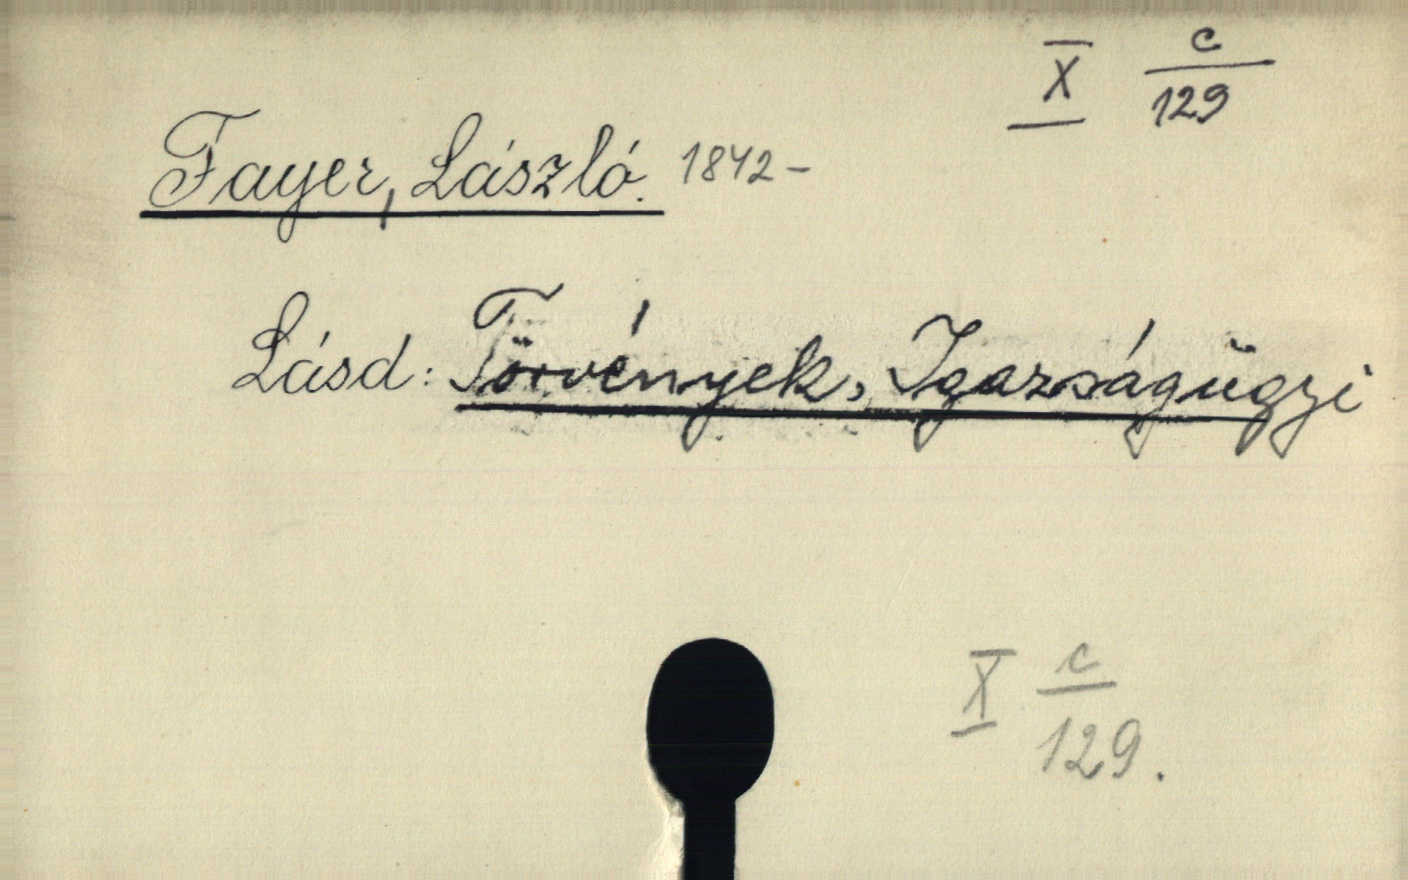 X c/129
Fayer, László. 1842-
Lásd: Törvények, Igazságügyi
X c/129.